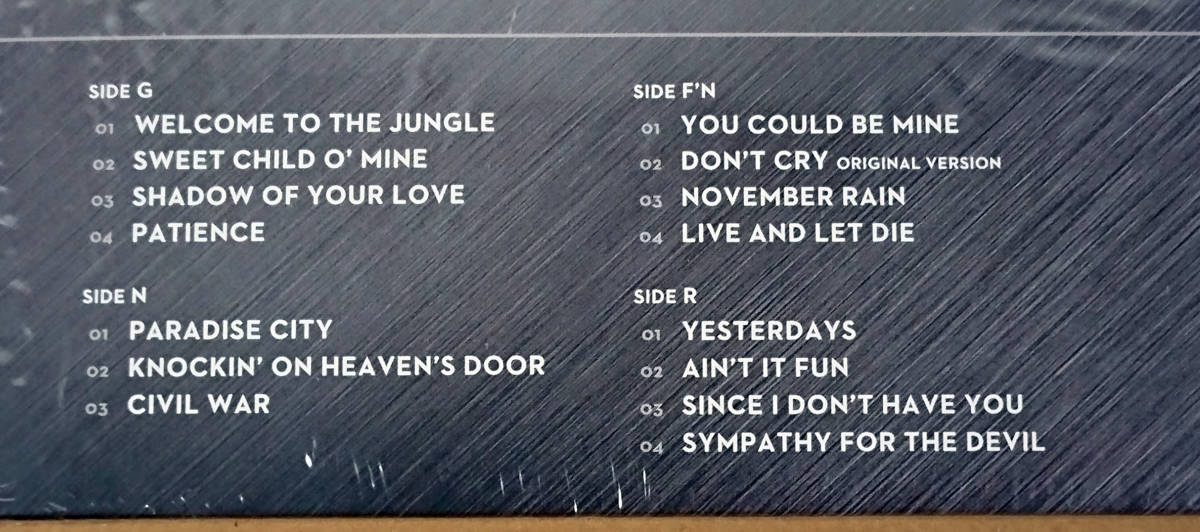 SIDE G
01 WELCOME TO THE JUNGLE
02 SWEET CHILD O' MINE
03 SHADOW OF YOUR LOVE
04 PATIENCE
SIDE N
01 PARADISE CITY
02 KNOCKIN' ON HEAVEN'S DOOR
03 CIVIL WAR
SIDE F'N
01 YOU COULD BE MINE
02 DON'T CRY ORIGINAL VERSION
03 NOVEMBER RAIN
04 LIVE AND LET DIE
SIDE R
01 YESTERDAYS
02 AIN'T IT FUN
03 SINCE I DON'T HAVE YOU
04 SYMPATHY FOR THE DEVIL